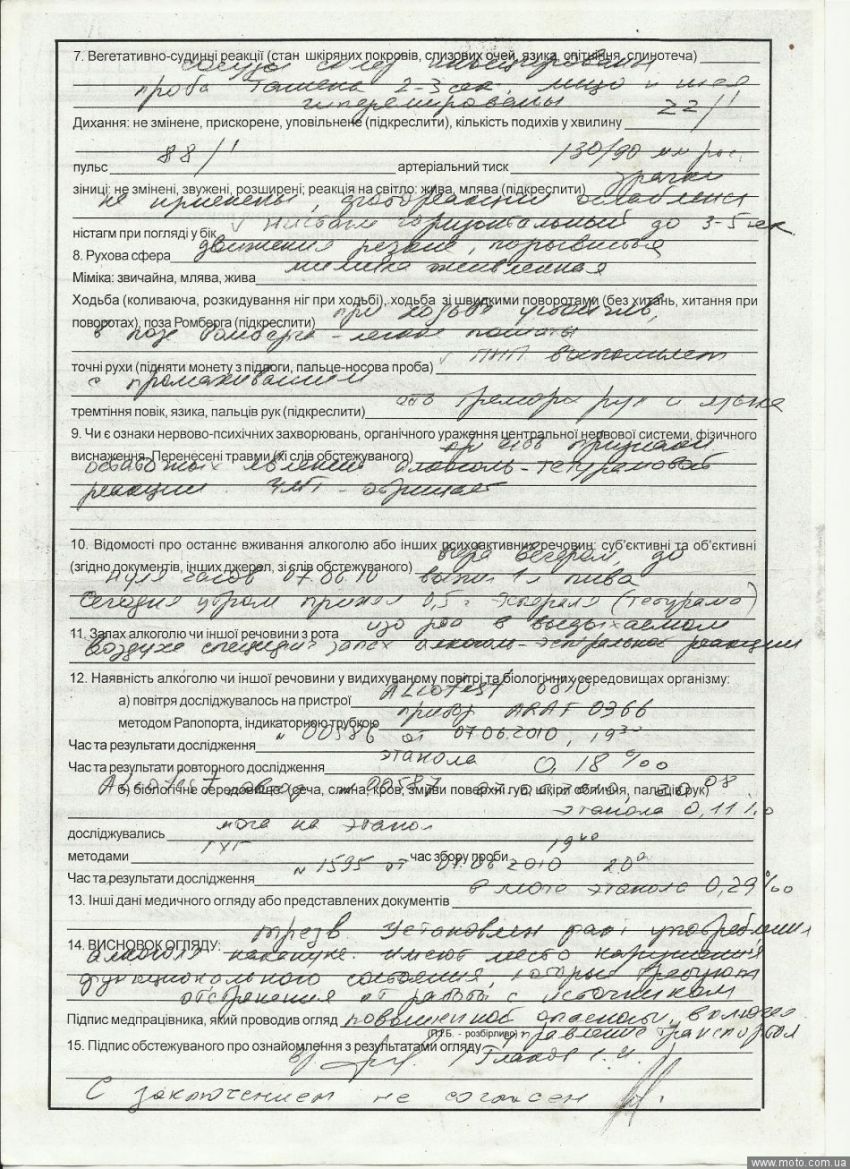 7. Вегетативно-судинні реакції (стан шкіряних покровів, слизових очей, язика, спітніння, слинотеча)
сосуды склер инъецированы
проба Ташена 2-3 сек, лицо и шея
гиперемированы
Дихання: не змінене, прискорене, уповільнене (підкреслити), кількість подихів у хвилину 22/1'
пульс 88/1' артеріальний тиск 130/90 мм рт.
зіниці: не змінені, звужені, розширені; реакція на світло: жива, млява (підкреслити) зрачки
не фотореакции ослаблены
ністагм при погляді у бік нистагм горизонтальный до 3-5 сек
8. Рухова сфера движения резкие, порывистые
Міміка: звичайна, млява, жива мимика оживленная
Ходьба (коливаюча, розкидування ніг при ходьбі), ходьба зі швидкими поворотами (без хитань, хитання при
поворотах), поза Ромберга (підкреслити) при ходьбе
в позе Ромберга - легкое
точні рухи (підняти монету з підлоги, пальце-носова проба) ПНП выполняет
с промахиванием
тремтіння повік, язика, пальців рук (підкреслити) тремора рук и языка
9. Чи є ознаки нервово-психічних захворювань, органічного ураження центральної нервової системи, фізичного
виснаження. Перенесені травми (зі слів обстежуваного) признаки
явлений алкоголь-тетурамовой
реакции. ЧМТ - отрицает
10. Відомості про останнє вживання алкоголю або інших психоактивних речовин: суб'єктивні та об'єктивні
(згідно документів, інших джерел, зі слів обстежуваного) вечером, до
нуля часов 07.06.10 выпил 1 л пива
Сегодня утром принял 0,5 г Эспераля (тетурама)
11. Запах алкоголю чи іншої речовини з рота изо рта в выдыхаемом
воздухе запах реакции
12. Наявність алкоголю чи іншої речовини у видихуваному повітрі та біологічних середовищах організму:
а) повітря досліджувалось на пристрої Alcotest 6810
методом Рапопорта, індикаторною трубкою прибор ARAF 0366
Час та результати дослідження № 00586 от 07.06.2010, 19
Час та результати повторного дослідження этанола 0,18 ‰
Alcotest № 00587 20 08
б) біологічне середовище (сеча, слина, кров, змиви поверхні губ, шкіри обличчя, пальців рук)
этанола 0,11 ‰
досліджувались моча на этанол
методами ГЖХ час збору проби 19 40
Час та результати дослідження № 1595 от 07.06.2010 20
в моче этанола 0,29 ‰
13. Інші дані медичного огляду або представлених документів
14. ВИСНОВОК ОГЛЯДУ: трезв. Установлен факт употребления
алкоголя накануне. Имеют место нарушения
функционального состояния, которые требуют
отстранения от работы с источником
Підпис медпрацівника, який проводив огляд повышенной опасности, включая
(П.І.Б. - розбірливо) управление транспортом
15. Підпис обстежуваного про ознайомлення з результатами огляду
С заключением не согласен
www.moto.com.ua